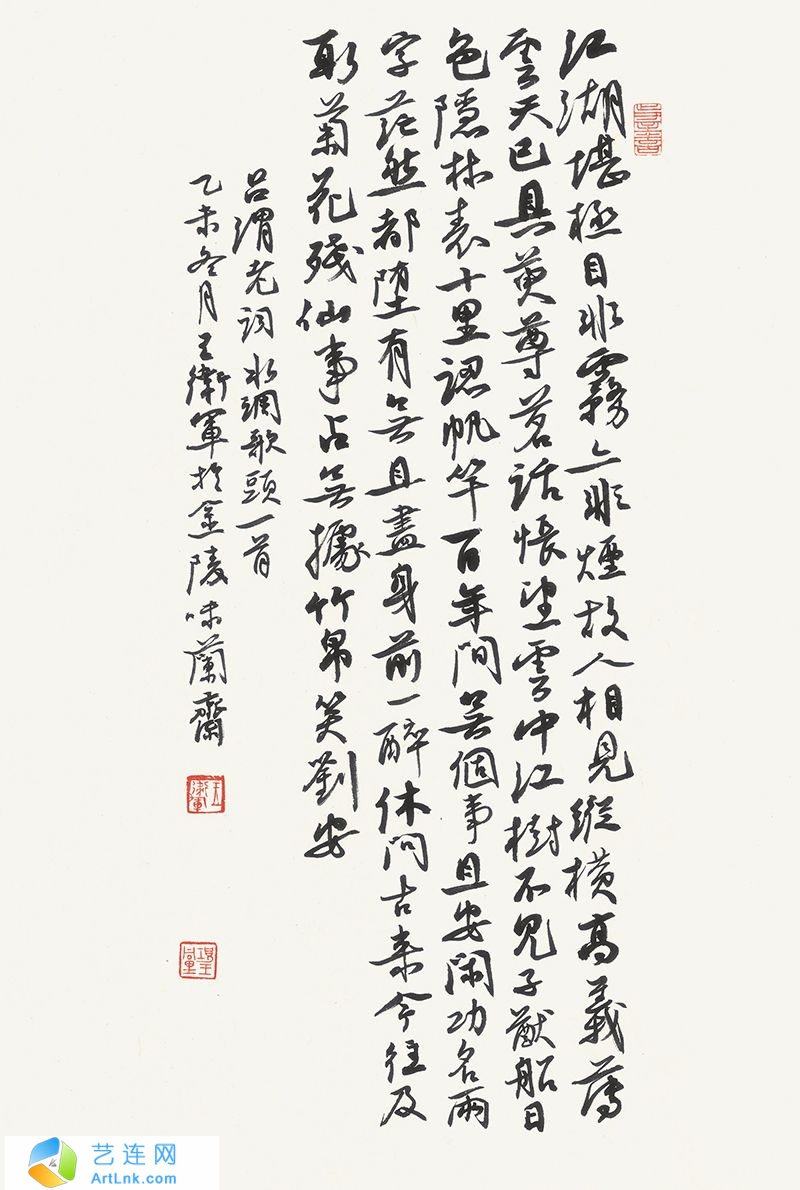 江湖堪極目非霧亦非煙故人相見縱橫高義薄
雲天已具黃尊茗話悵望雲中江樹不見子猷船日
色隱林表十里認帆竿百年間無個事且安閑功名兩
字茫然都墮有無且盡身前一醉休問古來今往及
取菊花殘仙事占無據竹帛笑劉安
呂渭老詞水調歌頭一首
乙未冬月王衛軍於金陵味蘭齋
王衛軍
艺连网
ArtLnk.com